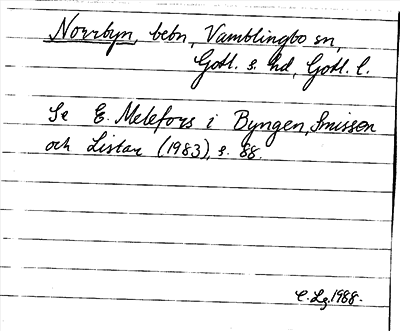 Norrbyn, bebn, Vamblingbo sn,
Gotl. s. hd, Gotl. l.
Se E. Melefors i Byngen, Smissen
och Listar (1983), s. 88.
C. Lg. 1988.